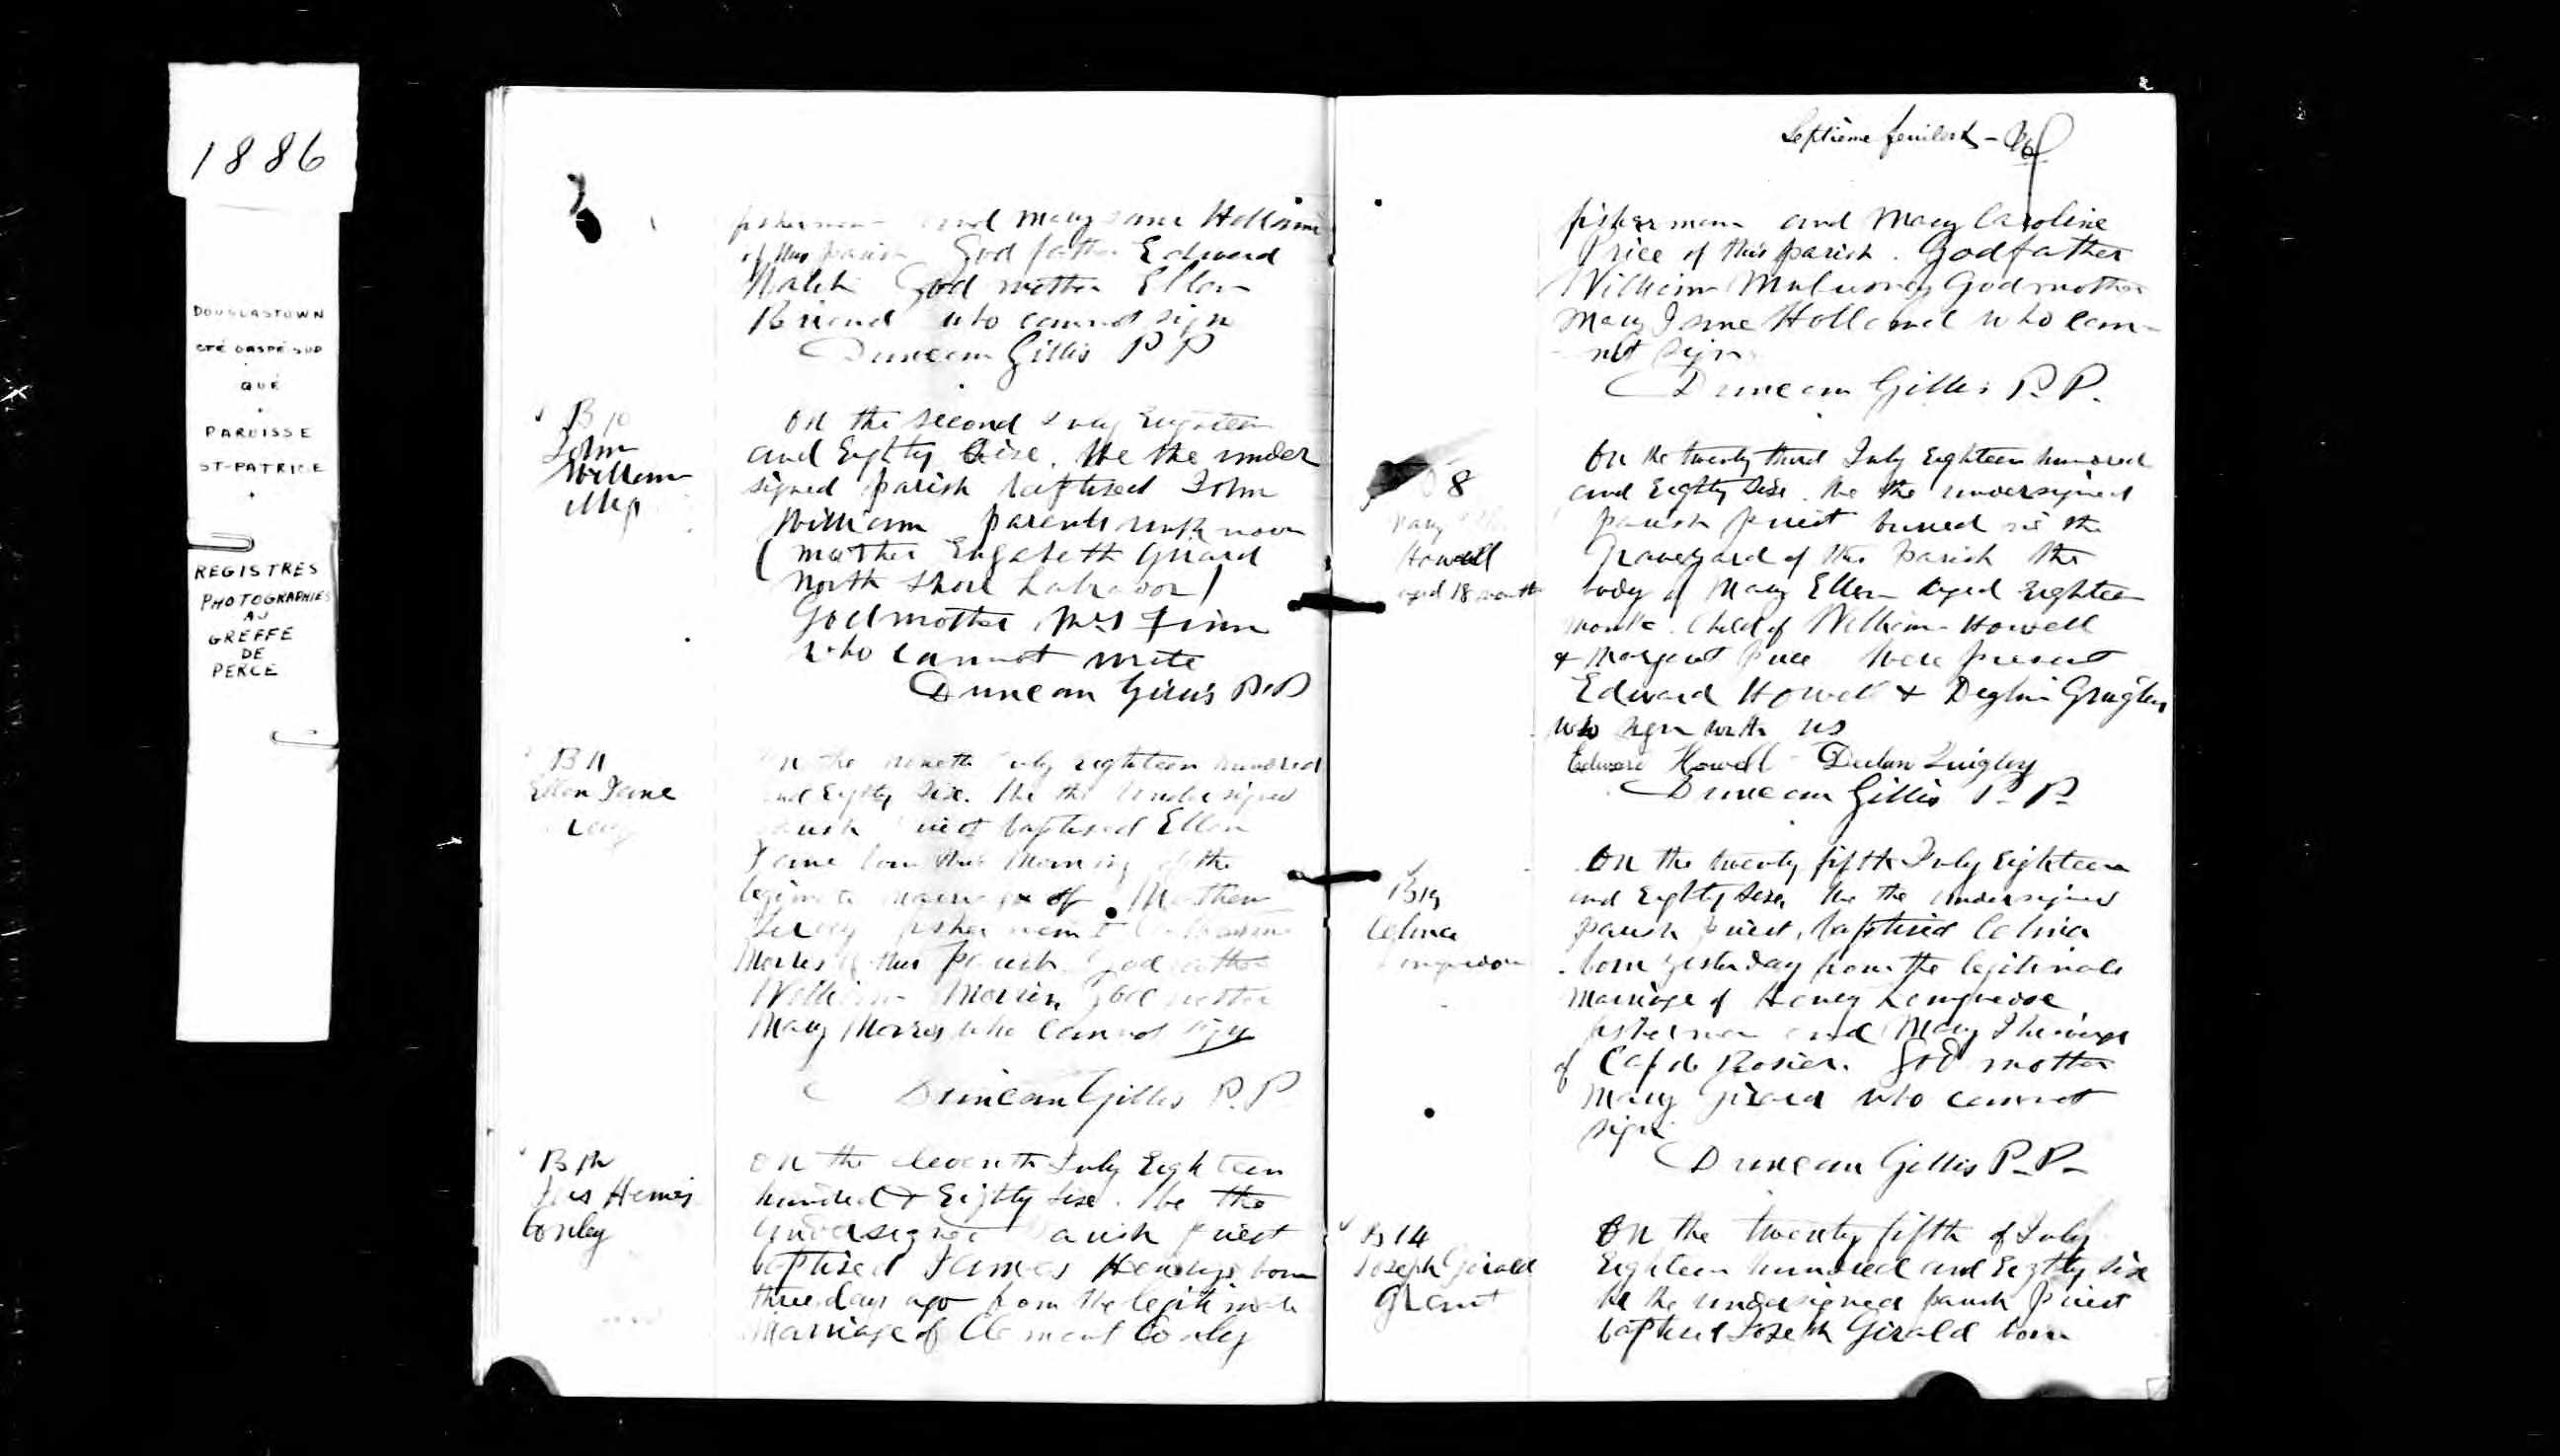 1886
DOUGLASTOWN
CTÉ GASPÉ SUD
QUÉ
PAROISSE
ST-PATRICE
REGISTRES
PHOTOGRAPHIES
AU
GREFFE
DE
PERCE
fisherman and Mary Jane
of this parish God father Edward
Walsh God mother Ellen
Briand who cannot sign
Duncan Gillis P P
B 10
John
William
On the second July Eighteen
and Eighty Sixe. We the under
signed parish baptised John
William parents unknown
(mother Elizabeth Girard
North Shore Labrador)
Godmother Mrs Finn
who cannot write
Duncan Gillis P.P
B 11
Ellen Jane
the July eighteen hundred
and Eighty Sixe. We the undersigned
baptised Ellen
Jane born this morning of the
of Mathew
fisherman &
Morris of this parish God
William Morris God mother
Mary Morris who cannot sign
Duncan Gillis P.P
B 12
Jas Henry
Conley
On the eleventh July Eighteen
hundred & Eighty Sixe. We the
undersigned parish priest
baptised James Henry born
three days ago from the legitimate
Marriage of Clement Conley
Septième feuillet -
fisherman and Mary Caroline
Price of this parish. Godfather
William Godmother
Mary Jane Holland who can-
not sign
Duncan Gillis P.P.
8
Mary
Howell
aged 18 month
On the twenty third July Eighteen hundred
and Eighty Sixe. We the undersigned
parish priest buried in the
Graveyard of this Parish the
body of Mary Ellen Aged Eighteen
month. Child of William Howell
& Margaret Price Were present
Edward Howell &
who sign with us
Edward Howell Quigley
Duncan Gillis P. P.
Celina
On the twenty fifth July Eighteen
and Eighty Sixe, We the undersigned
parish priest, baptised Celina
born yesterday from the legitimate
Marriage of Henry
fisherman and Mary
of Cap de Rosier. God mother
Mary Girard who cannot
sign
Duncan Gillis P.P.
B 14
Joseph Girald
Grant
On the twenty fifth of July
Eighteen hundred and Eighty Sixe
We the undersigned parish priest
baptised Joseph Girald born